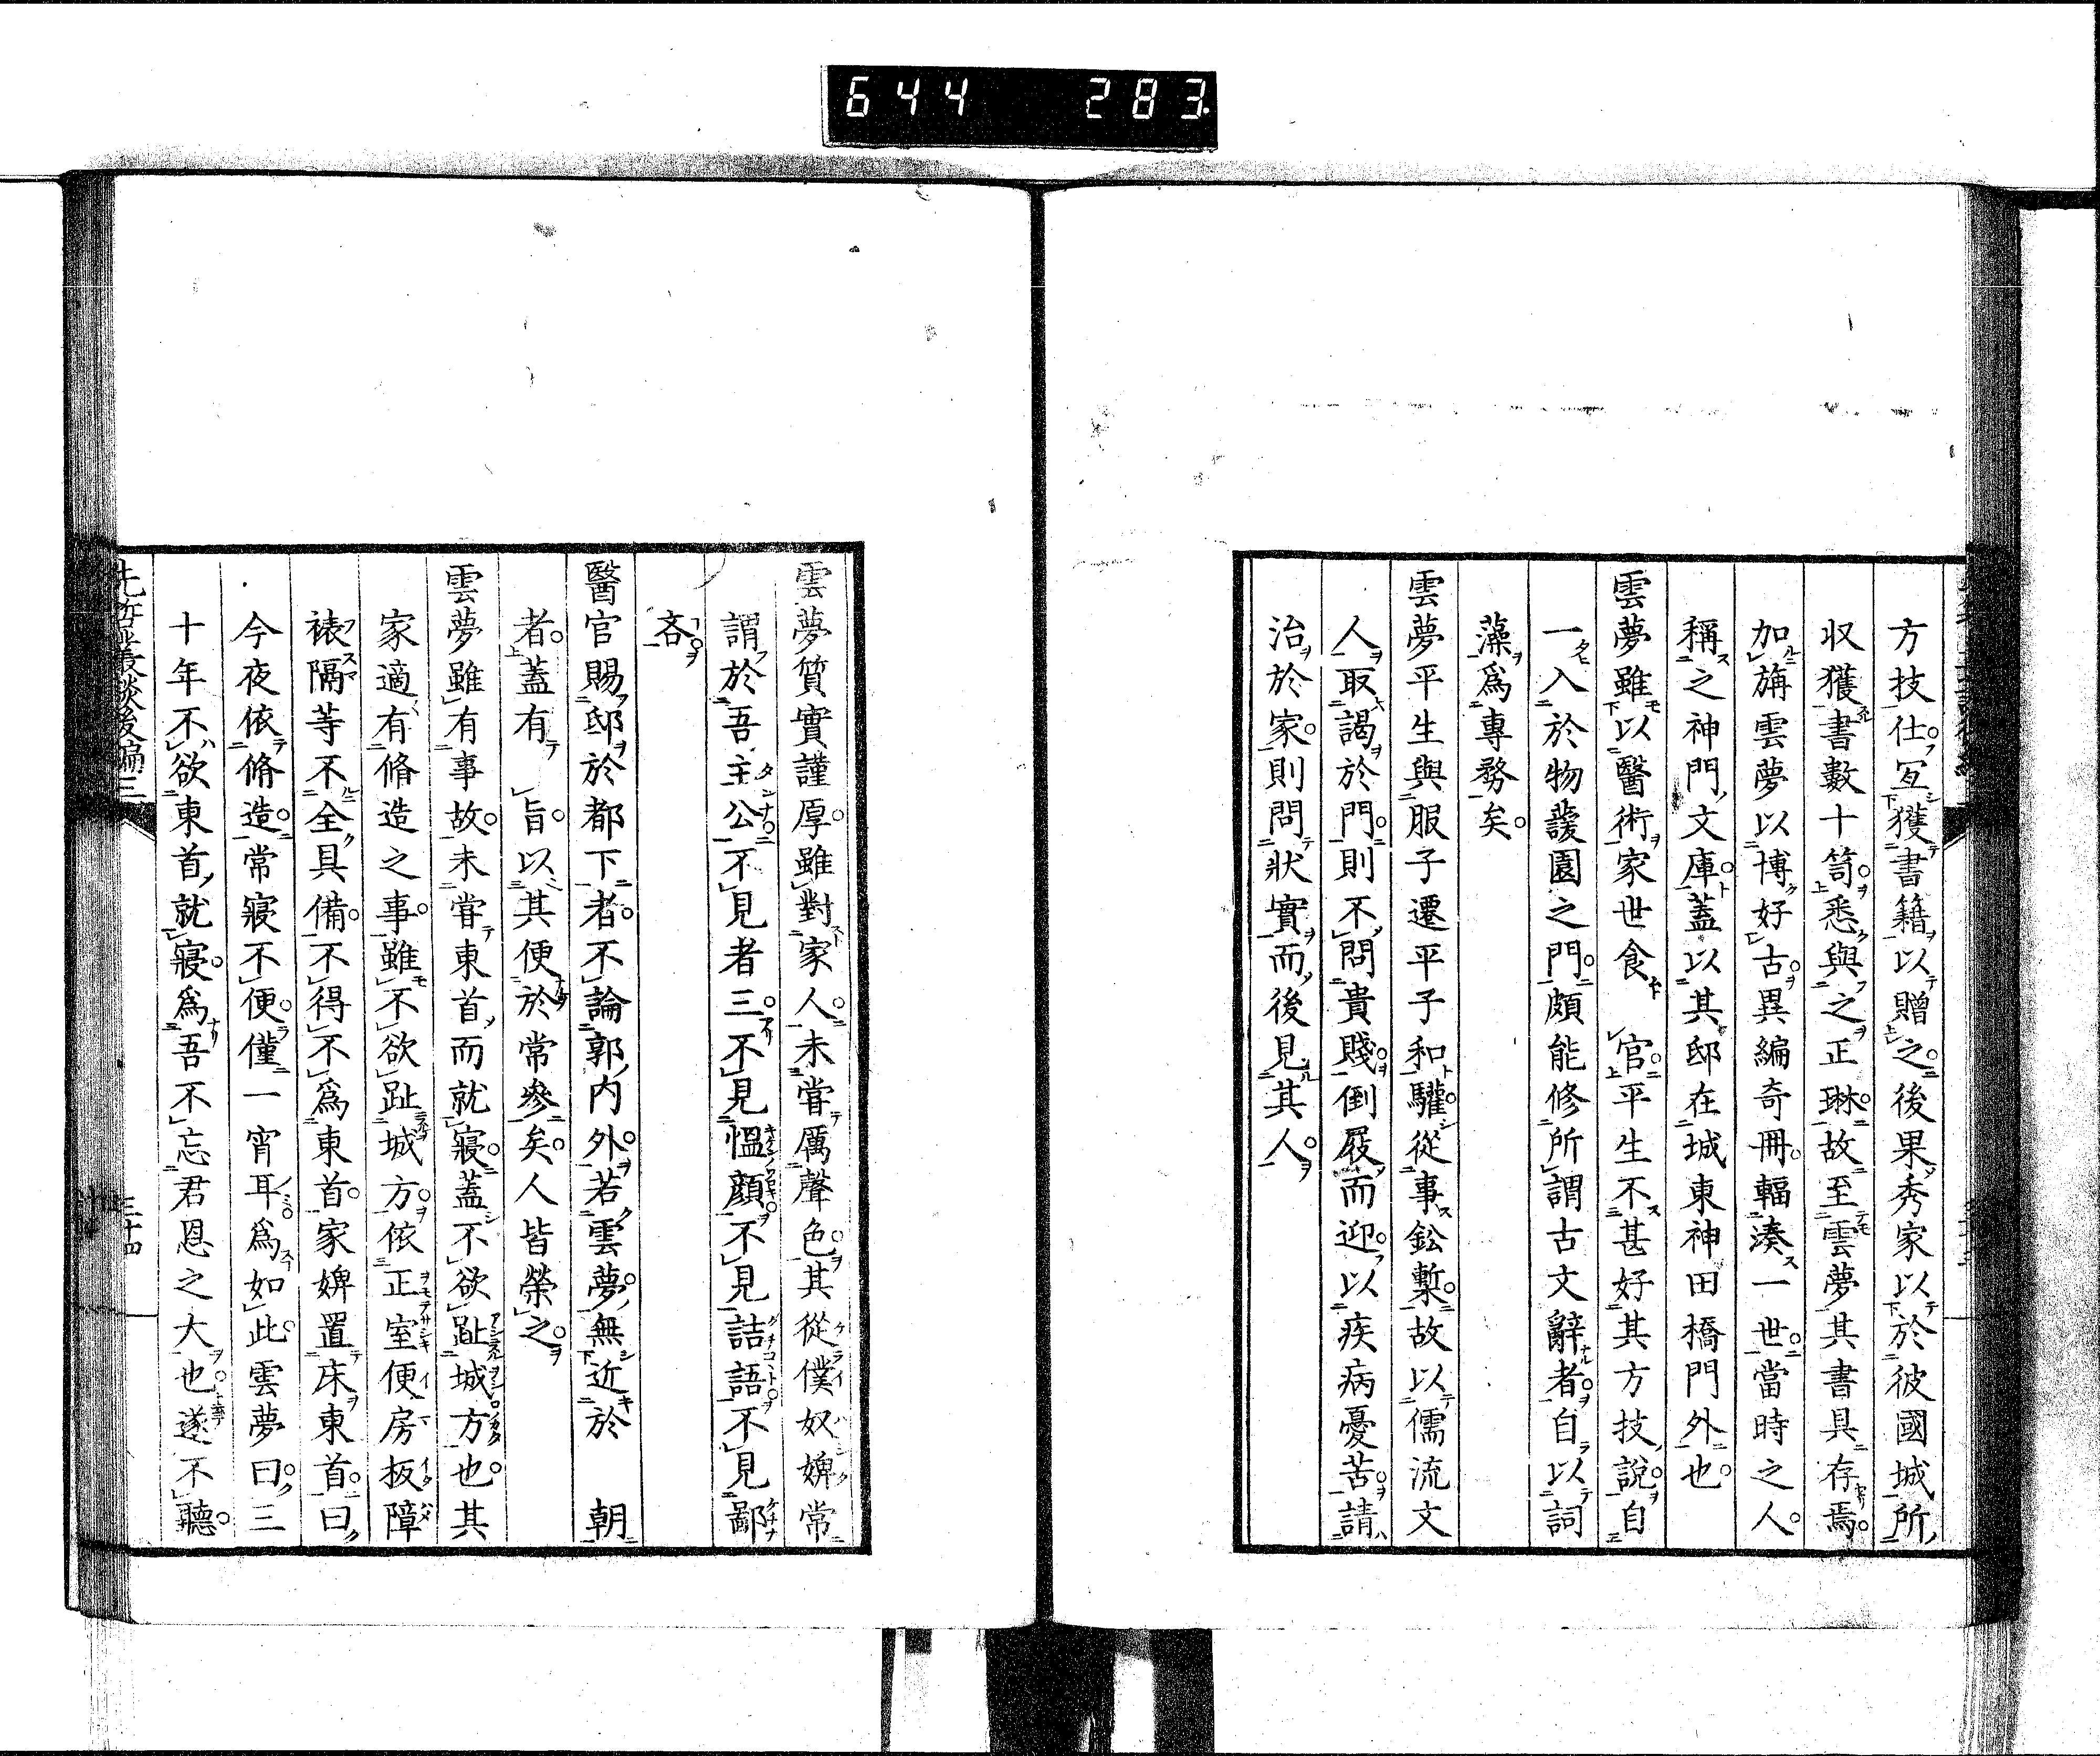 644 283
方技仕宜獲書籍以贈之後果秀家以於彼國城所
収獲書數十笥悉與之正琳故至雲夢其書具存焉
加旃雲夢以博好古異編奇冊輻湊一世當時之人
稱之神門文庫蓋以其邸在城東神田橋門外也
雲夢雖以醫術家世食 官平生不甚好其方技說自
一入於物蘐園之門頗能修所謂古文辭者自以詞
藻爲專務矣
雲夢平生與服子遷平子和驩從事鉛槧故以儒流文
人取謁於門則不問貴賤倒屐而迎以疾病憂苦請
治於家則問狀實而後見其人
雲夢質實謹厚雖對家人未嘗厲聲色其從僕奴婢常
謂於吾主公不見者三不見慍顔不見詰語不見鄙
吝
醫官賜邸於都下者不論郭内外若雲夢無近於 朝
者蓋有 旨以其便於常參矣人皆榮之
雲夢雖有事故未嘗東首而就寢蓋不欲趾城方也其
家適有脩造之事雖不欲趾城方依正室便房板障
裱隔等不全具備不得不爲東首家婢置床東首曰
今夜依脩造常寢不便僅一宵耳爲如此雲夢曰三
十年不欲東首就寢爲吾不忘君恩之大也遂不聽
先哲叢談後編三
三十四